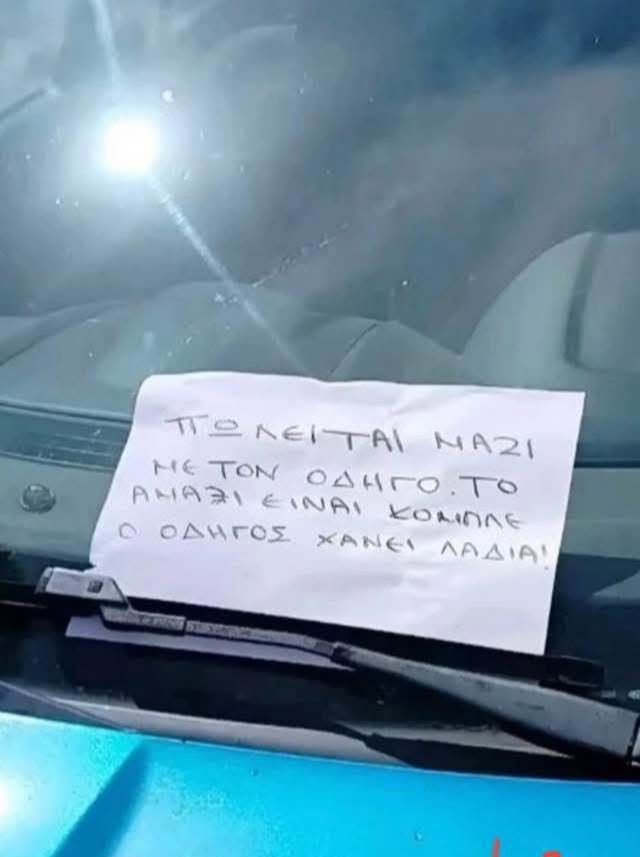 ΠΩΛΕΙΤΑΙ ΜΑΖΙ
ΜΕ ΤΟΝ ΟΔΗΓΟ. ΤΟ
ΑΜΑΞΙ ΕΙΝΑΙ ΚΟΜΠΛΕ
Ο ΟΔΗΓΟΣ ΧΑΝΕΙ ΛΑΔΙΑ!